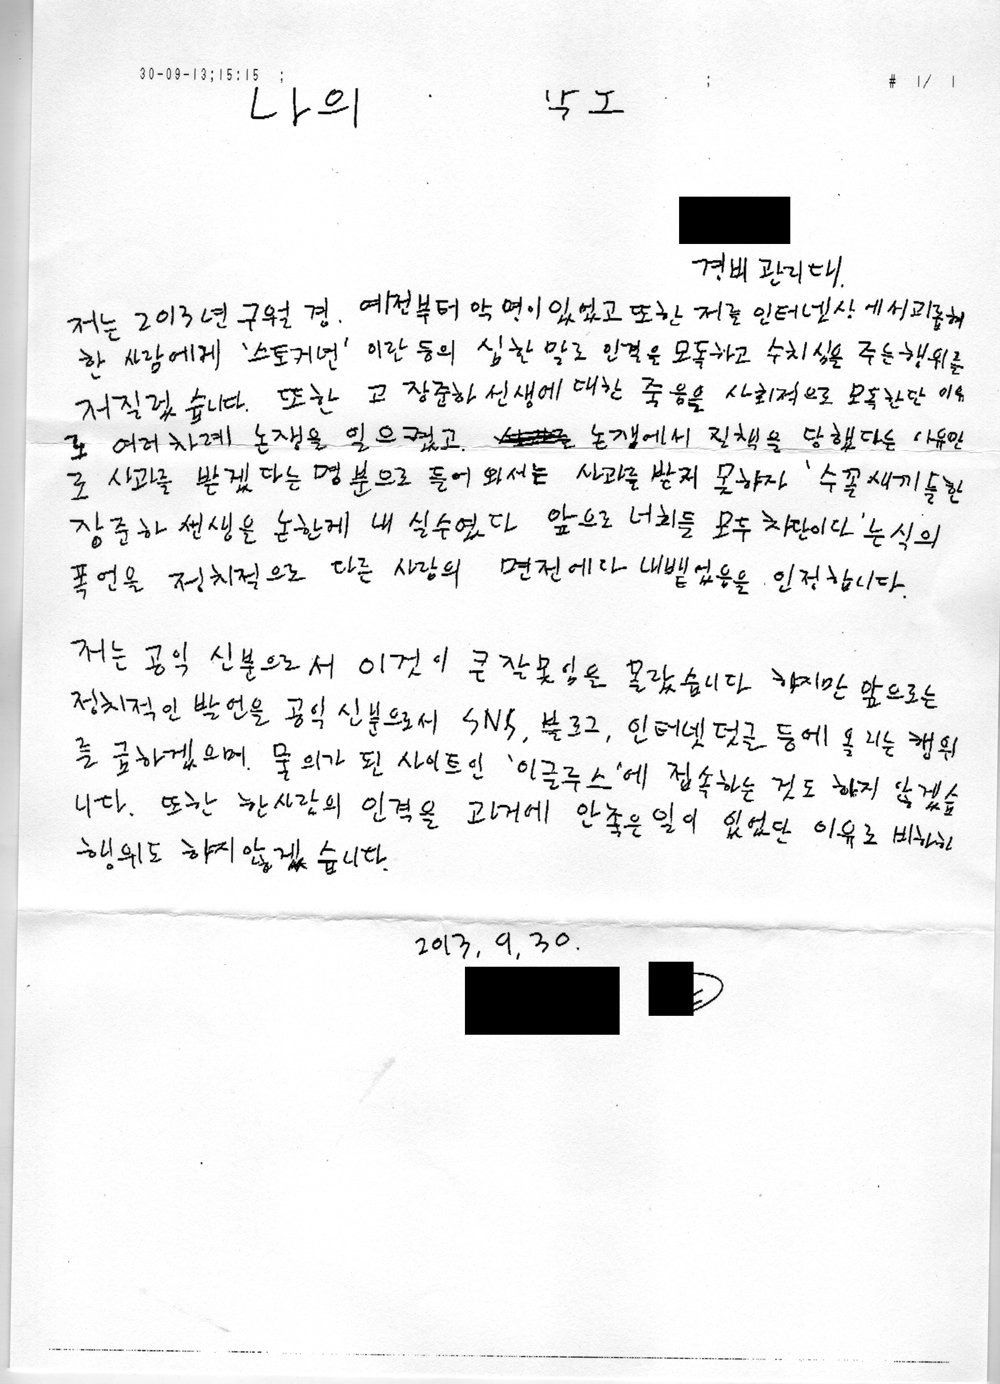 30-09-13;15:15 ; ; # 1/ 1
나의 각오
경비 관리대.
저는 2013년 구월 경. 예전부터 악연이 있었고 또한 저를 인터넷상에서 괴롭혀
한 사람에게 '스토커년' 이란 등의 심한 말로 인격을 모독하고 수치심을 주는 행위를
저질렀습니다. 또한 고 장준하 선생에 대한 죽음을 사회적으로 모독한단 이유
로 여러차례 논쟁을 일으켰고. 논쟁에서 질책을 당했다는 이유만
로 사과를 받겠다는 명분으로 들어 와서는 사과를 받지 못하자 '수꼴새끼들한
장준하 선생을 논한게 내 실수였다 앞으로 너희들 모두 차단이다'는식의
폭언을 정치적으로 다른 사람의 면전에다 내뱉었음을 인정합니다.
저는 공익 신분으로서 이것이 큰 잘못임을 몰랐습니다 하지만 앞으로는
정치적인 발언을 공익 신분으로서 SNS, 블로그, 인터넷 덧글 등에 올리는 행위
를 금하겠으며. 물의가 된 사이트인 '이글루스'에 접속하는 것도 하지 않겠습
니다. 또한 한사람의 인격을 과거에 안좋은 일이 있었단 이유로 비하한
행위도 하지않겠습니다.
2013. 9. 30.